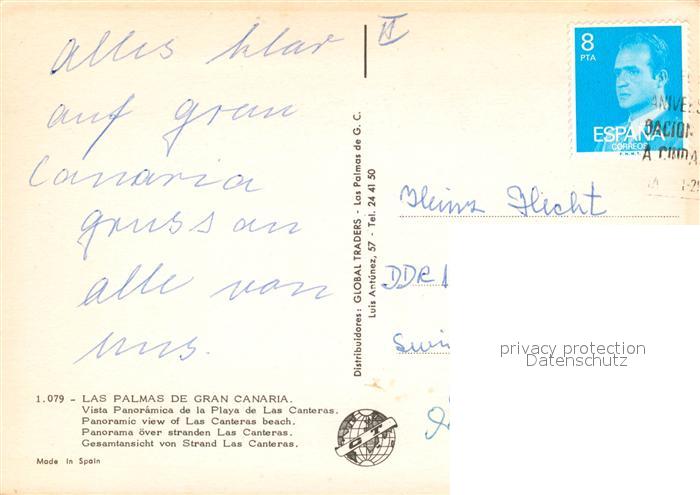 alles klar
auf gran
Canaria
gruss an
alle von
uns.
1.079 - LAS PALMAS DE GRAN CANARIA.
Vista Panorámica de la Playa de Las Canteras.
Panoramic view of Las Canteras beach.
Panorama över stranden Las Canteras.
Gesamtansicht von Strand Las Canteras.
Made In Spain
Distribuidores: GLOBAL TRADERS - Las Palmas de G. C.
Luis Antúnez, 57 - Tel. 24 41 50
8
PTA
ESPAÑA
CORREOS
F.N.M.T.
ANIVERS
DACION
A CIUDA
Heinz Hecht
DDR
privacy protection
Datenschutz